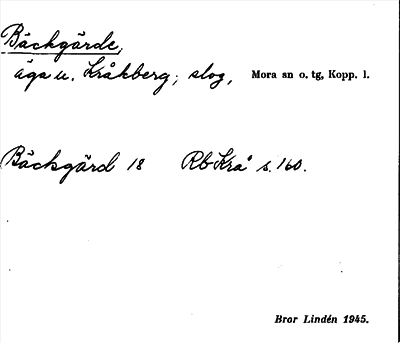 Bäckgärde,
äga u. Kråkberg; slog, Mora sn o. tg, Kopp. l.
Bäckgärd 18 Rb Krå s. 160.
Bror Lindén 1945.